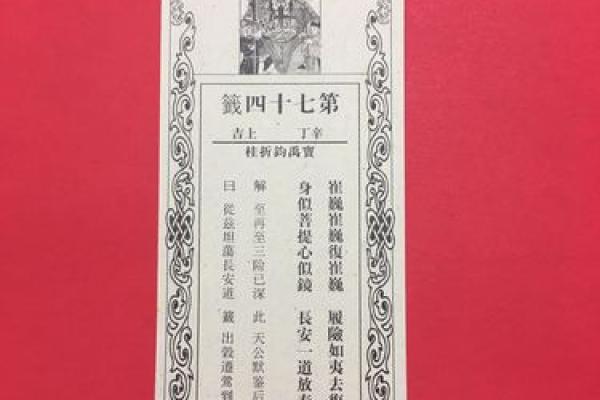 第七十四籤
辛丁 上吉
竇禹鈞折桂
崔巍崔巍復崔巍 履險如夷去復
身似菩提心似鏡 長安一道放春
解 至再至三險已深 此 天公默鑒后
曰 從茲坦蕩長安道 籤 出穀遷鶯到